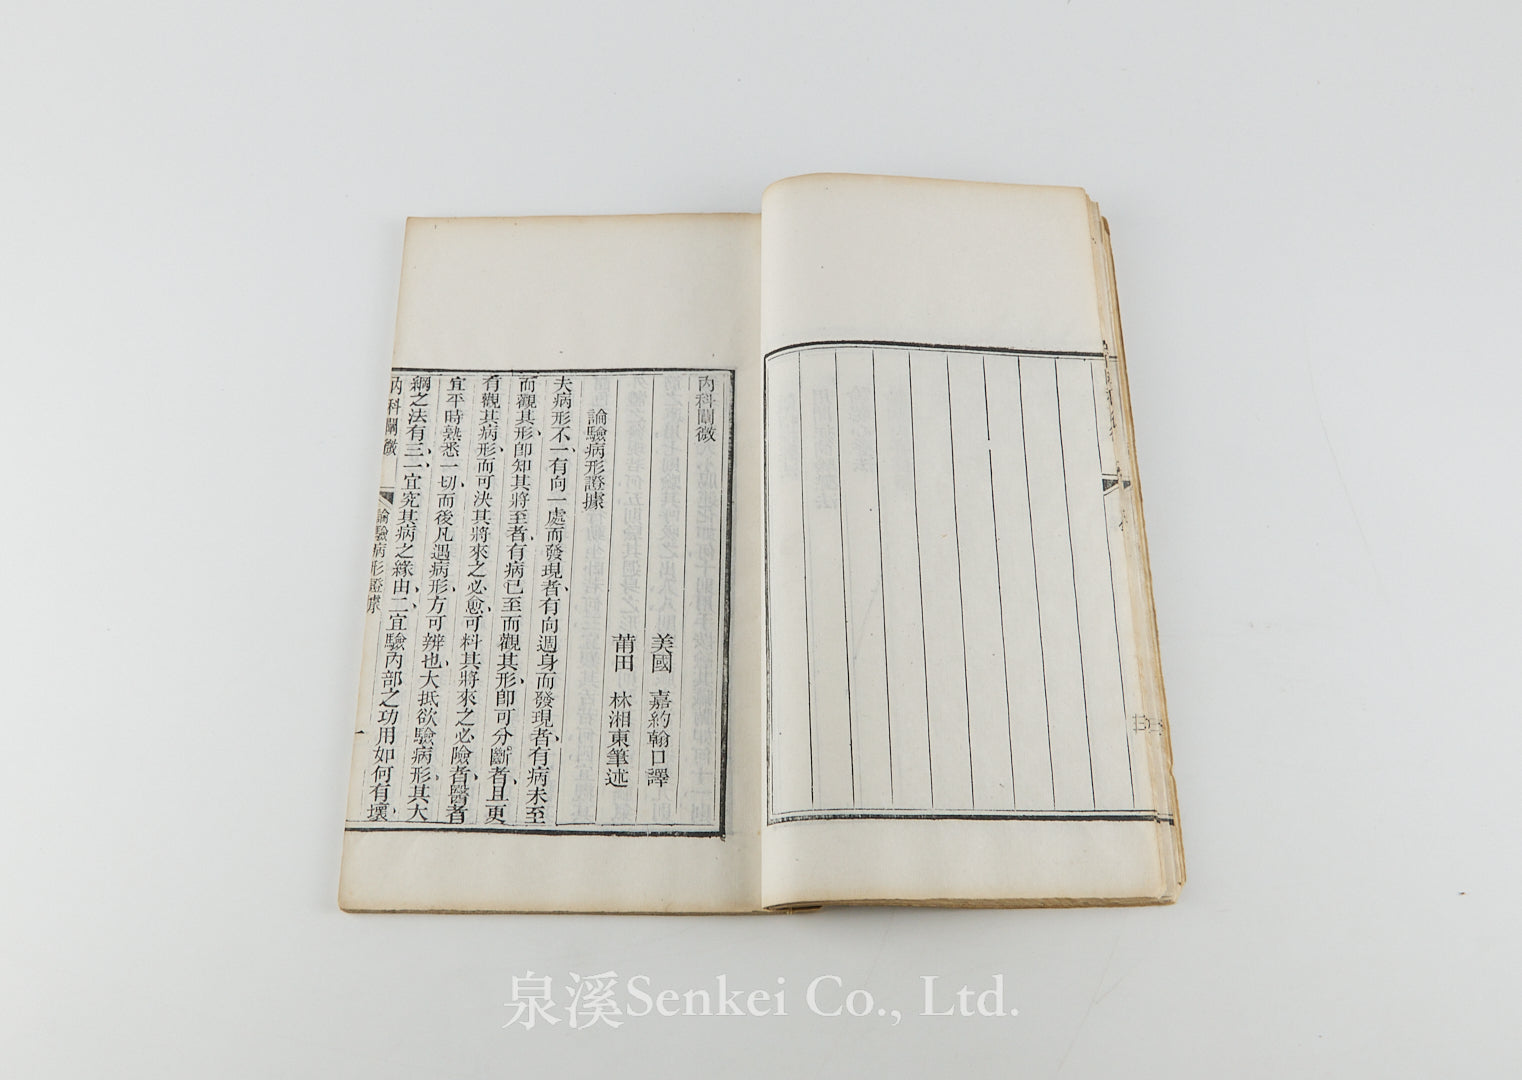 內科闡微
美國 嘉約翰口譯
莆田 林湘東筆述
論驗病形證據
夫病形不一、有向一處而發現者、有向週身而發現者、有病未至
而觀其形、卽知其將至者、有病已至而觀其形、卽可分斷者、且更
有觀其病形、而可決其將來之必愈、可料其將來之必險者、醫者
宜平時熟悉一切、而後凡遇病形、方可辨也、大抵欲驗病形、其大
綱之法有三、一宜究其病之緣由、二宜驗內部之功用如何、有壞
內科闡微
論驗病形證據
一
泉溪Senkei Co., Ltd.